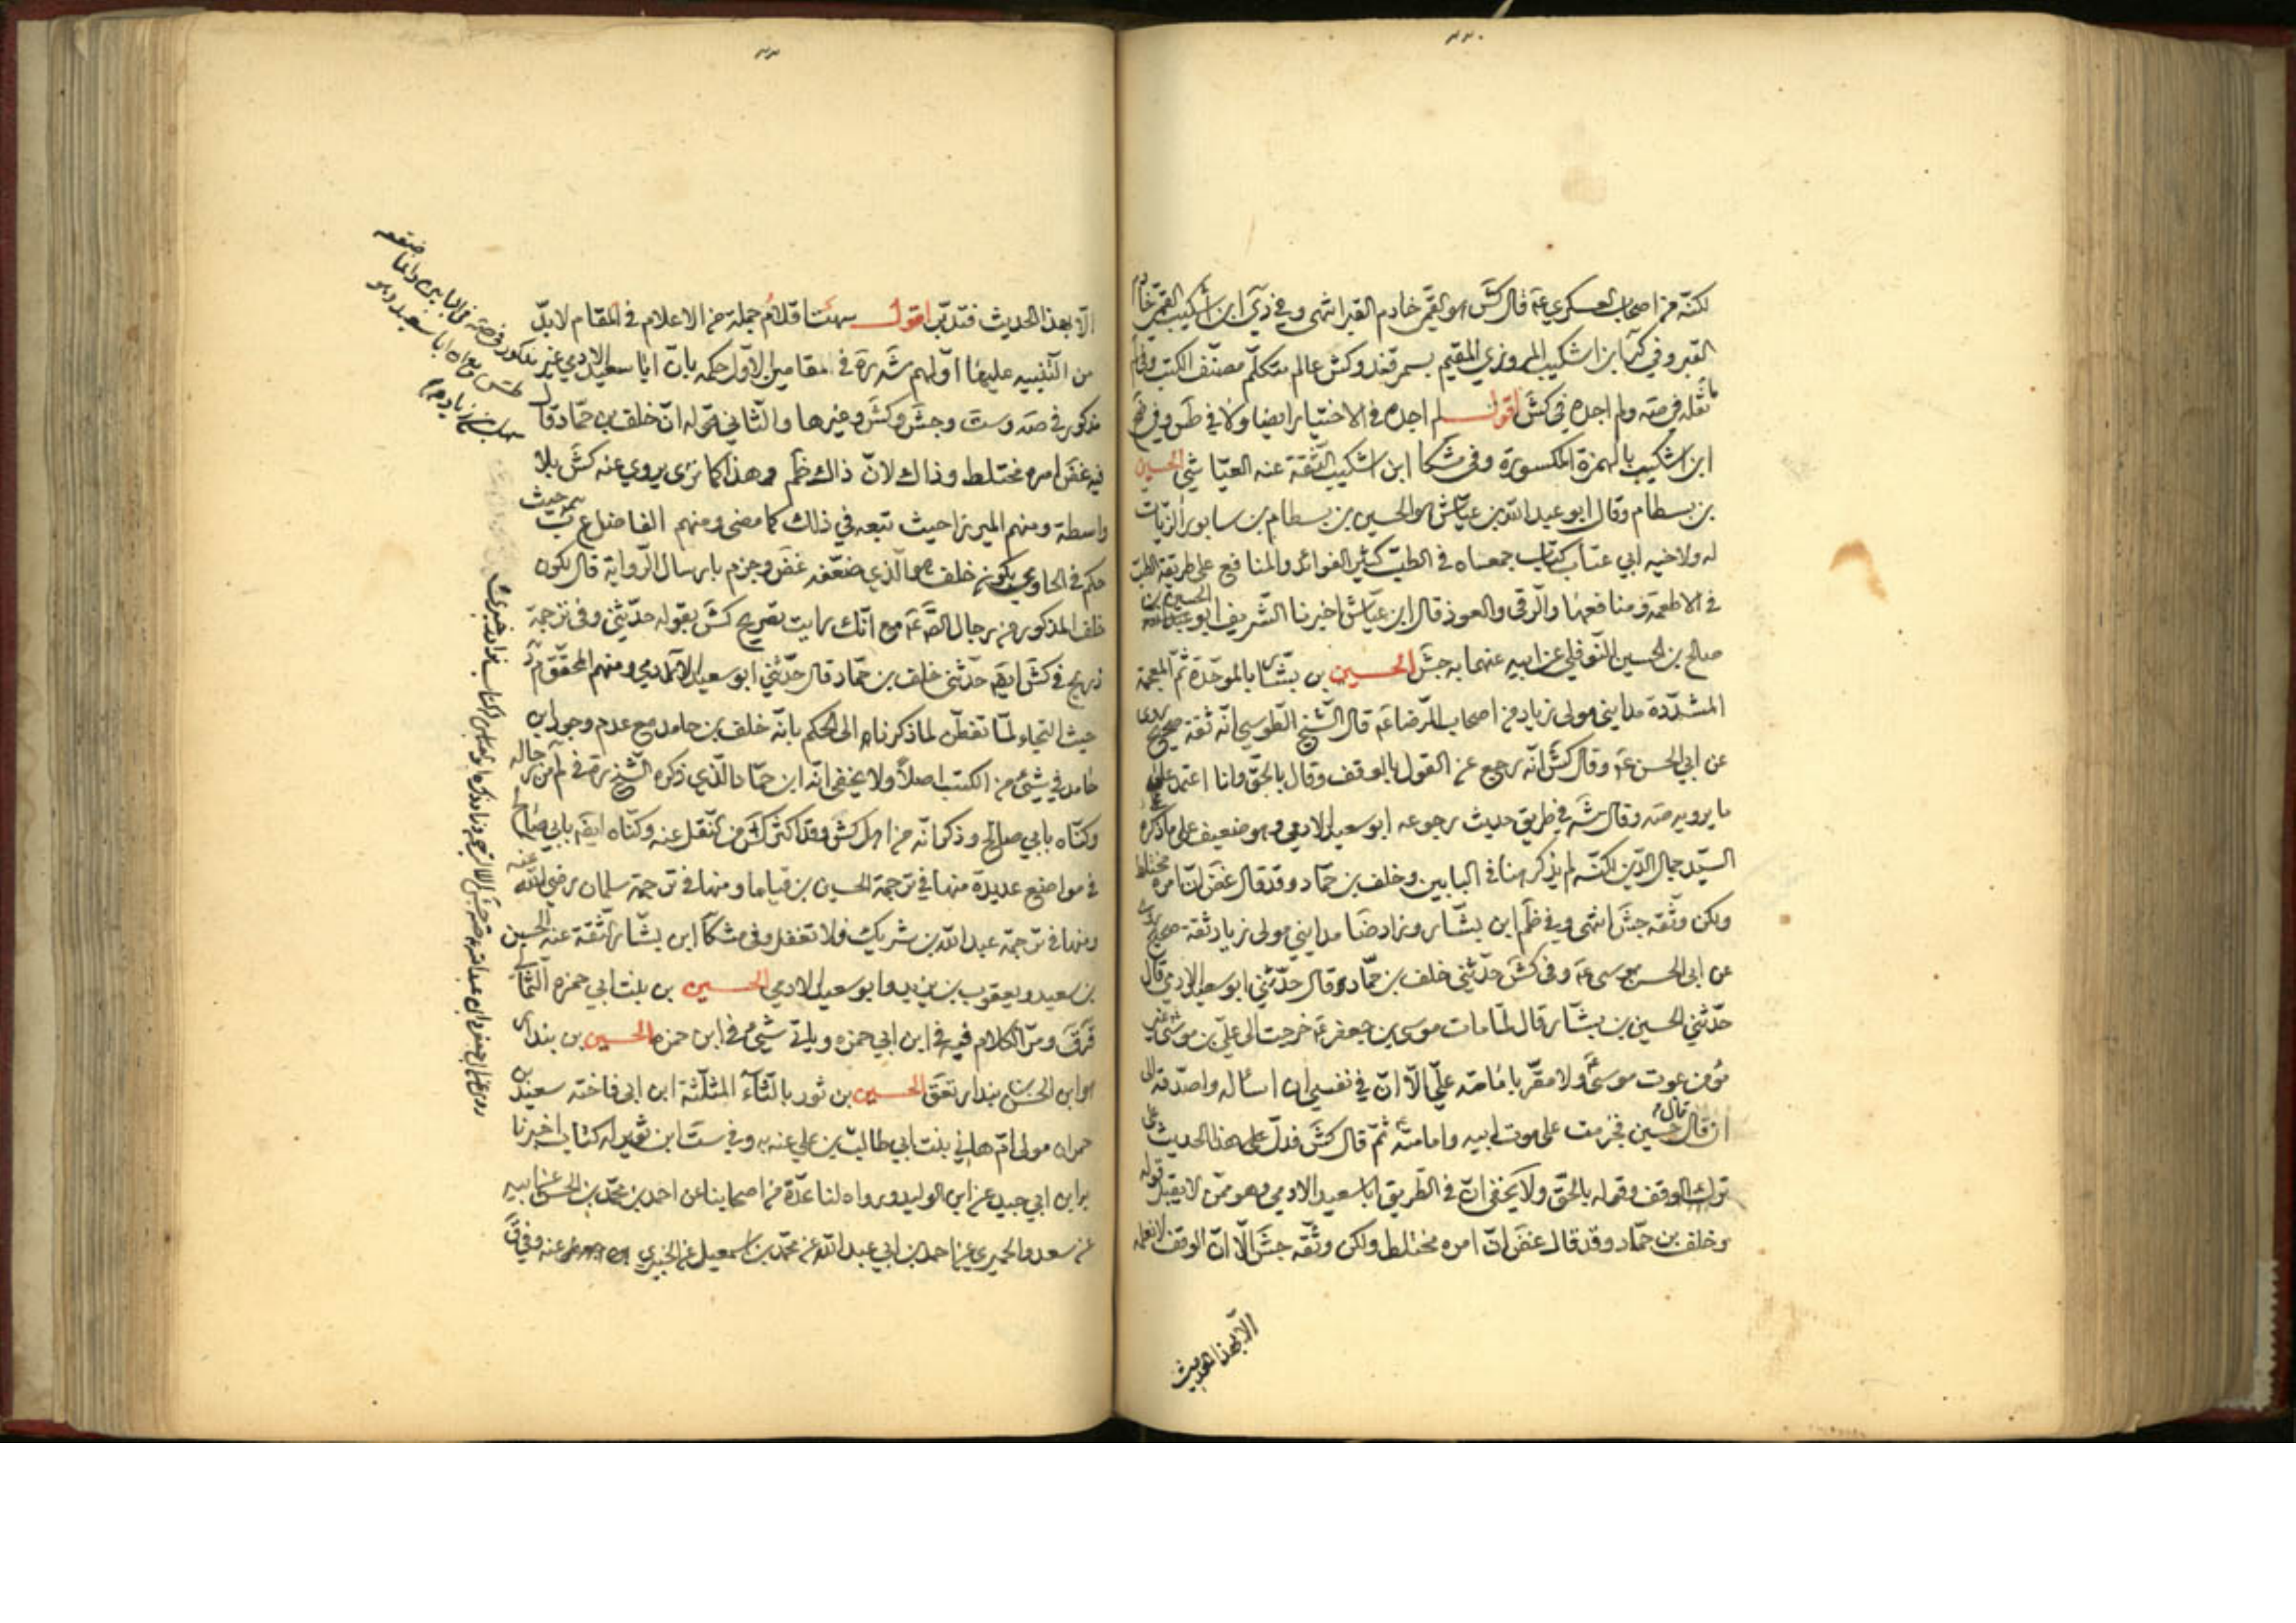 ٢٢٠
لكنّه من اصحاب العسكري عه قال كش هو القمّي خادم القبر انتهى وفي دي ابن اشكيب القمّي خادم
القبر وفي كر ابن اشكيب المروزي المقيم بسمرقند وكش عالم متكلّم مصنّف الكتب وقال
ما نقله في صه ولم اجده في كش اقول لم اجده في الاختيار ايضا ولا في طس وفي ضح
ابن اشكيب بالهمزة المكسورة وفي مشكا ابن اشكيب الثقة عنه العيّاشي الحسين
بن بسطام وقال ابو عبد الله بن عيّاش هو الحسين بن بسطام بن سابور الزيّات
له ولاخيه ابي عتاب كتاب جمعاه في الطبّ كثير الفوائد والمنافع على طريقة الطبّ
في الاطعمة ومنافعها والرّقى والعوذ قال ابن عيّاش اخبرنا الشّريف ابو الحسين بن
صالح بن الحسين النّوفلي عن ابيه عنهما به جش الحسين بن بشّار بالموحّدة ثمّ المعجمة
المشدّدة مدايني مولى زياد من اصحاب الرّضا عه قال الشّيخ الطّوسي انّه ثقة صحيح روى
عن ابي الحسن عه وقال كش انّه رجع عن القول بالوقف وقال بالحقّ وانا اعتمد على
ما يرويه صه وقال شه في طريق حديث رجوعه ابو سعيد الادمي وهو ضعيف على ما ذكره
السيّد جمال الدّين لكنّه لم يذكر هنا في البابين وخلف بن حمّاد وقد قال غض انّ امره مختلط
ولكن وثّقه جش انتهى وفي ظم ابن بشّار وزاد ضا مدايني مولى زياد ثقة صحيح روى
عن ابي الحسن موسى عه وفي كش حدّثني خلف بن حمّاد قال حدّثني ابو سعيد الادمي قال
حدّثني الحسين بن بشّار قال لمّا مات موسى بن جعفر عه خرجت الى عليّ بن موسى غير
مؤمن بموت موسى ع ولا مقرّ بامامة عليّ الّا انّ في نفسي ان اساله واصدّقه الى
ان قال قال حسين فجزمت على موت ابيه وامامته ثمّ قال كش فدلّ هذا الحديث على
ترك الوقف وقوله بالحقّ ولا يخفى انّ في الطّريق ابا سعيد الادمي وهو ممّن لا يقبل قوله
وخلف بن حمّاد وقد قال غض انّ امره مختلط ولكن وثّقه جش الّا انّ الوقف لا نعلمه
الّا بهذا الحديث
الّا بهذا الحديث فتدبّر اقول جملة من الاعلام في المقام لابدّ
من التّنبيه عليها اوّلهم شه ره في مقامين الاوّل حكمه بانّ ابا سعيد الادمي غير
مذكور في صه وست وجش وكش وغيرها والثّاني قوله انّ خلف بن حمّاد قال
فيه غض امره مختلط وذاك لانّ ذاك ظم وهذا كما ترى يروي عنه كش بلا
واسطة ومنهم الميرزا حيث تبعه في ذلك كما مضى ومنهم الفاضل عب ره حيث
حكم في الحاوي بكون خلف هو الّذي ضعّفه غض وجزم بارسال الرّواية قال لكون
خلف المذكور من رجال الص عه مع انّك رايت تصريح كش بقوله حدّثني وفي ترجمة
ذريح في كش ايضه حدّثني خلف بن حمّاد قال حدّثني ابو سعيد الادمي ومنهم المحقّق
حيث التجاء لمّا تفطّن لما ذكرناه الى الحكم بانّه خلف بن حامد مع عدم وجود ابن
حامد في شيء من الكتب اصلاً ولا يخفى انّه ابن حمّاد الّذي ذكره الشّيخ ره في لم من رجاله
وكنّاه بابي صالح وذكر انّه من اهل كش وقد اكثر كش من النّقل عنه وكنّاه ايضه بابي صالح
في مواضع عديدة منها في ترجمة الحسين بن قياما ومنها في ترجمة سلمان رضي الله عنه
ومنها في ترجمة عبد الله بن شريك فلا تغفل وفي مشكا ابن بشّار الثقة عنه الحسين
بن سعيد ويعقوب بن يزيد وابو سعيد الادمي الحسين بن بنت ابي حمزه الثمالي
قرق ومرّ الكلام فيه في ابن ابي حمزه وياتي شيء في ابن حمزه الحسين بن بندار
هو ابن الحسن بن بندار تعق الحسين بن ثور بالثّاء المثلّثة ابن ابي فاخته سعيد بن
حمران مولى امّ هاني بنت ابي طالب بن علي عنه به وفي ست ابن ثوير له كتاب اخبرنا
به ابن ابي جيد عن ابن الوليد ورواه لنا عدّة من اصحابنا عن احمد بن محمّد بن الحسن عن ابيه
عن سعد والحميري عن احمد بن ابي عبد الله عن محمّد بن اسمعيل عن الخيبري عنه وفي ق